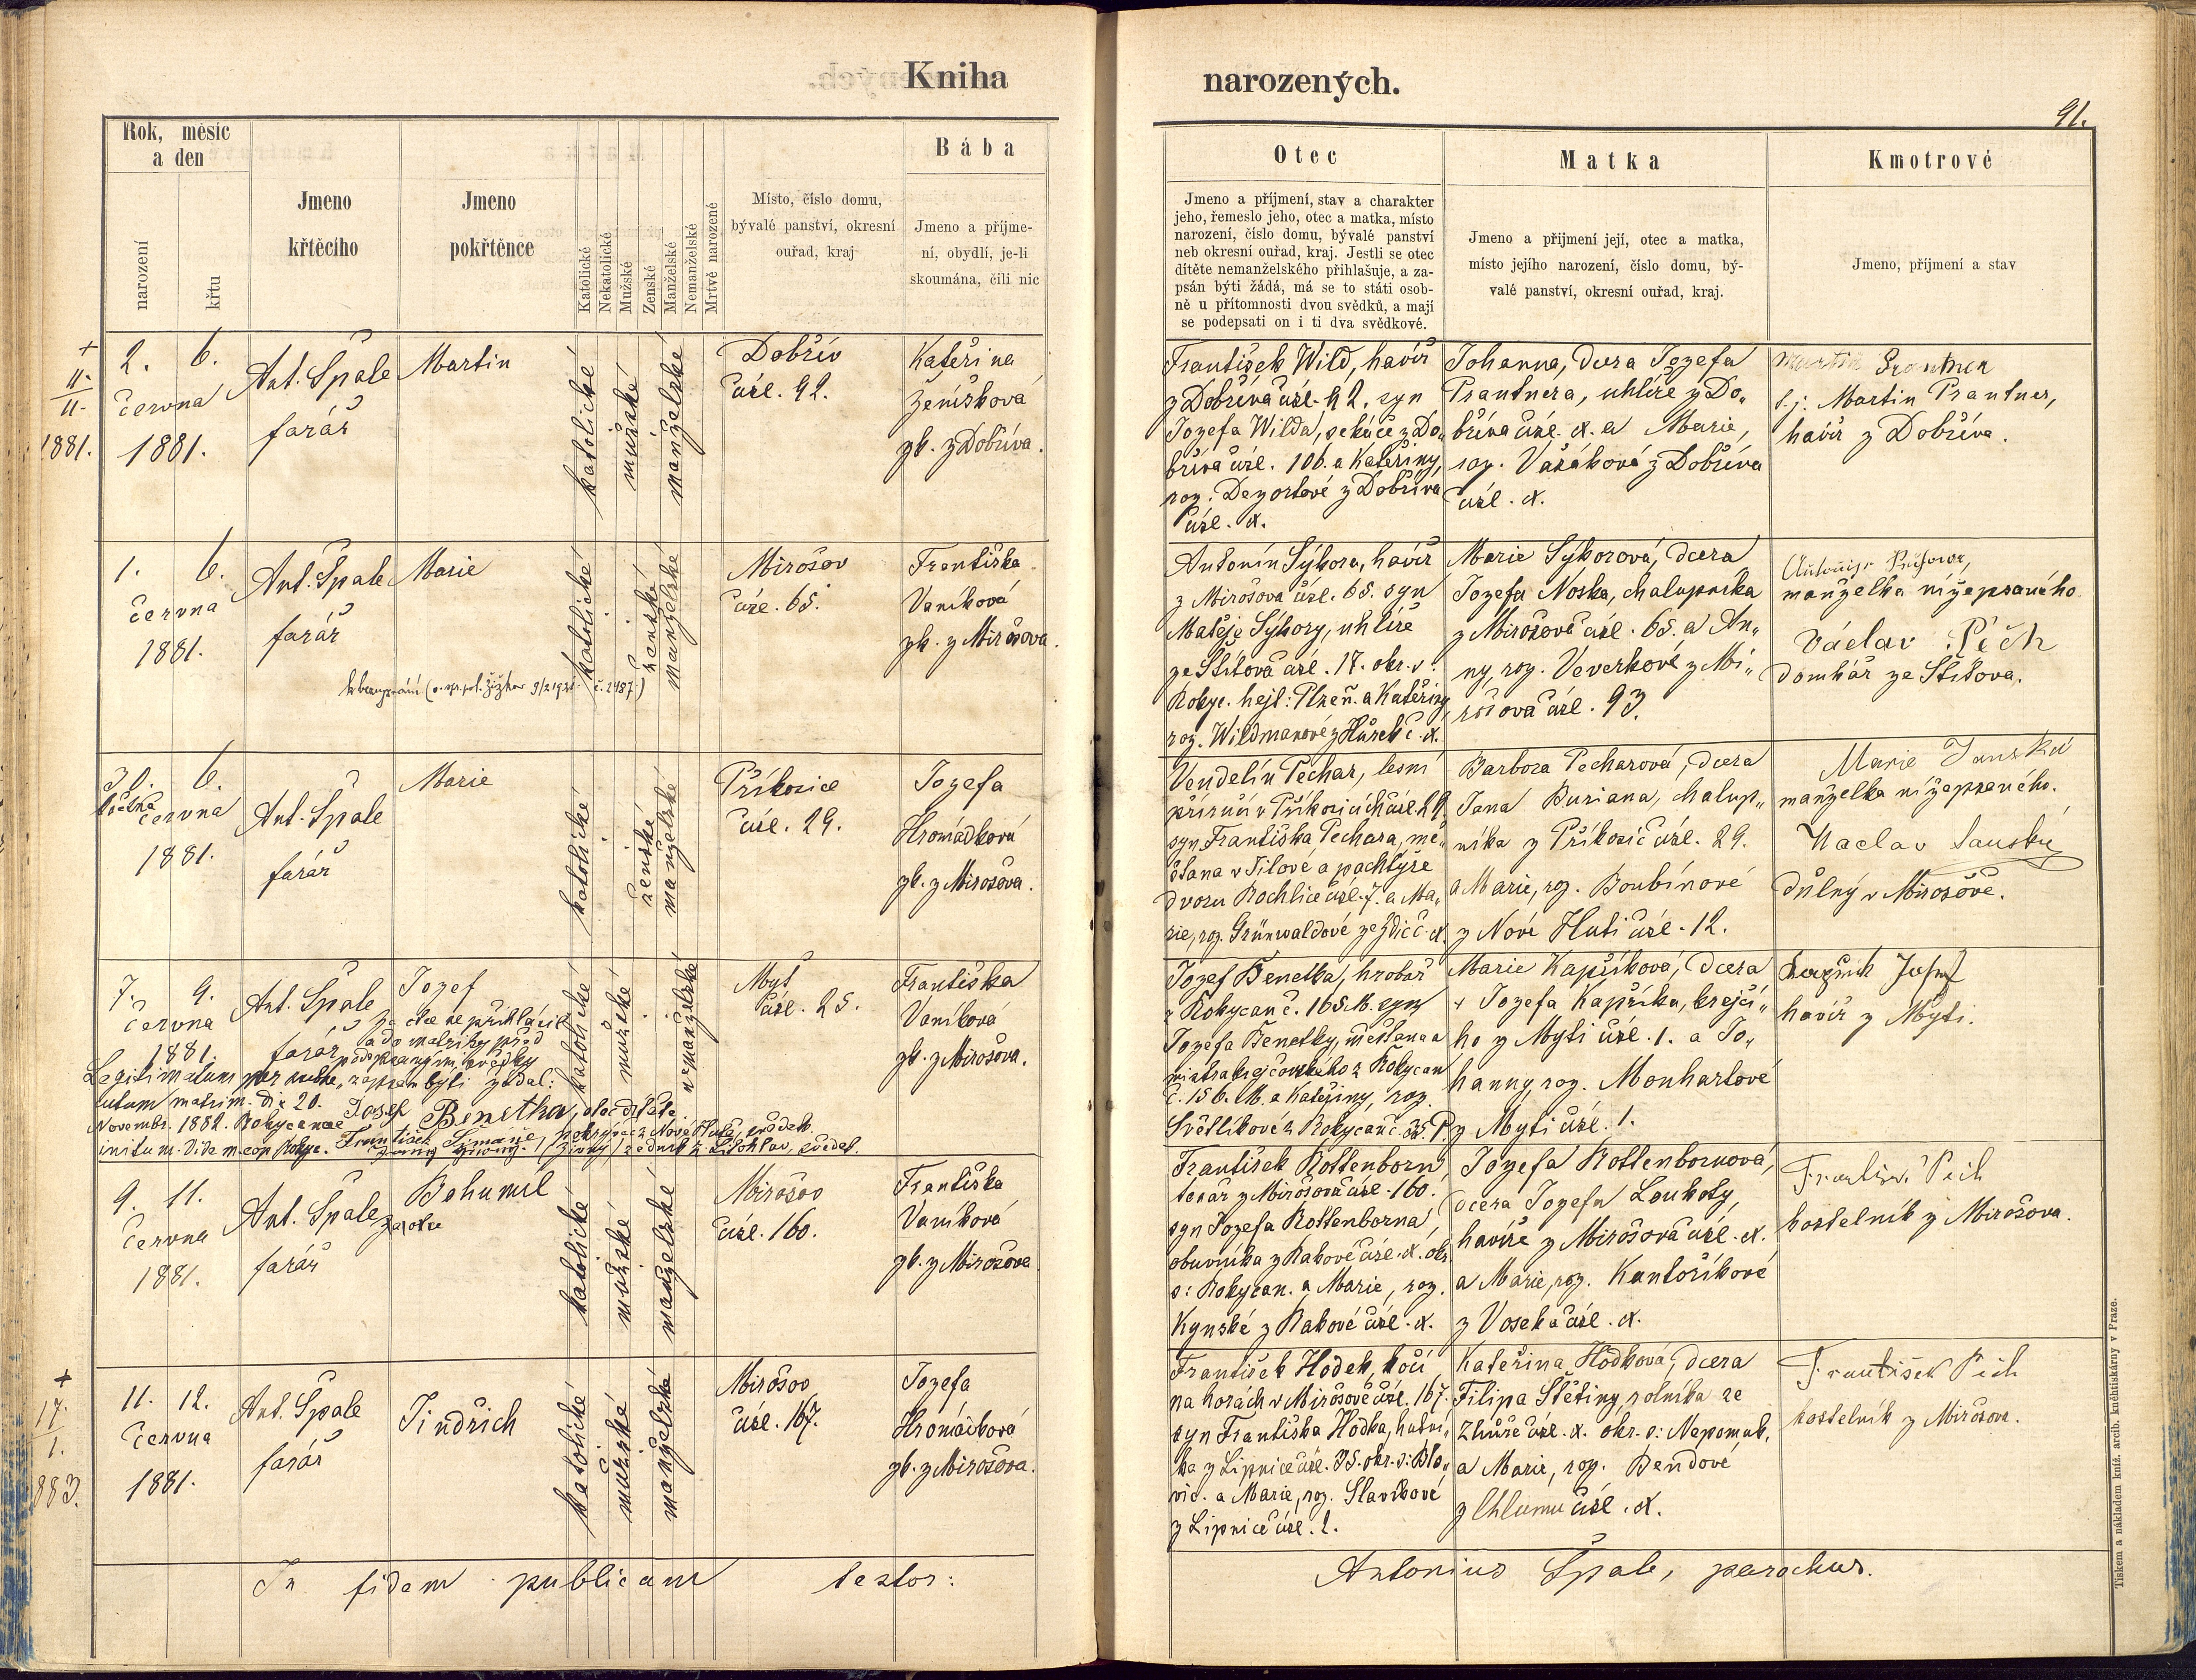 Kniha
narozených.
91.
Rok, měsíc
a den
narození
křtu
Jmeno
křtěcího
Jmeno
pokřtěnce
Katolické
Nekatolické
Mužské
Ženské
Manželské
Nemanželské
Mrtvě narozené
Místo, číslo domu,
bývalé panství, okresní
ouřad, kraj
Bába
Jmeno a příjme-
ní, obydlí, je-li
skoumána, čili nic
Otec
Jmeno a příjmení, stav a charakter
jeho, řemeslo jeho, otec a matka, místo
narození, číslo domu, bývalé panství
neb okresní ouřad, kraj. Jestli se otec
dítěte nemanželského přihlašuje, a za-
psán býti žádá, má se to státi osob-
ně u přítomnosti dvou svědků, a mají
se podepsati on i ti dva svědkové.
Matka
Jmeno a přijmení její, otec a matka,
místo jejího narození, číslo domu, bý-
valé panství, okresní ouřad, kraj.
Kmotrové
Jmeno, příjmení a stav
+
11.
11.
1881.
2. 6.
června
1881.
Ant. Špale
farář
Martin
katolické
mužské
manželské
Dobřív
čísl. 92.
Kateřina
Ženíšková
zk. z Dobříva.
František Wild, havíř
z Dobříva čísl. 92. syn
Jozefa Wilda, sekáče z Do„
bříva čísl. 106. a Kateřiny,
roz. Dezortové z Dobříva
čísl. x.
Johanna, dcera Jozefa
Prantnera, uhlíře z Do„
bříva čísl. x. a Marie,
roz. Vašákové z Dobříva
čísl. x.
t.j. Martin Prantner,
havíř z Dobříva.
1. 6.
června
1881.
Ant. Špale
farář
Marie
katolické
ženské
manželské
Mirošov
čísl. 65.
Františka
Vaníková
zk. z Mirošova.
Antonín Sýkora, havíř
z Mirošova čísl. 65. syn
Matěje Sýkory, uhlíře
ze Štítova čísl. 17. okr. s:
Rokyc. hejt: Plzeň. a Kateřiny
roz. Wildmanové z Hůrek č. x.
Marie Sýkorová, dcera
Jozefa Noska, chalupníka
z Mirošova čísl. 65. a An„
ny, roz. Veverkové z Mi„
rošova čísl. 93.
manželka nížepsaného.
Václav Pěch
domkář ze Štítova.
30. 6.
května
června
1881.
Ant. Špale
farář
Marie
katolické
ženské
manželské
Příkosice
čísl. 29.
Jozefa
Hromádková
zk. z Mirošova.
Vendelín Pechar, lesní
příručí v Příkosicích čísl. 29.
syn Františka Pechara, mě„
šťana v Žilově a pachtýře
dvoru Rochlice čísl. 7. a Ma„
rie, roz. Grünwaldové ze Zdic č. x.
Barbora Pecharová, dcera
Jana Buriana, chalup„
níka z Příkosic čísl. 29.
a Marie, roz. Boubínové
z Nové Huti čísl. 12.
Marie Janská
manželka nížepsaného.
Vaclav Janský
důlný v Mirošově.
7. 9.
června
1881.
Ant. Špale
farář
Jozef
za otce se přihlásil
a do matriky před
podepsanými svědky
zapsán býti žádal:
Josef Benetka, otec dítěte
Legitimatum per
cutum matrim. die 20.
Novembr. 1882. Rokycanae
initum. Vide m. cop. Rokyc.
katolické
mužské
nemanželské
Myť
čísl. 25.
Františka
Vaníková
zk. z Mirošova.
Jozef Benetka, hrobař
z Rokycan č. 165. M. syn
Jozefa Benetky, měšťana a
mistra krejčovského z Rokycan
č. 156. M. a Kateřiny, roz.
Světlíkové z Rokycan č. 35. P.
Marie Kapříková, dcera
+ Jozefa Kapříka, krejčí„
ho z Myti čísl. 1. a Jo„
hanny, roz. Monhartové
z Myti čísl. 1.
Kapřík Josef
havíř z Myti.
9. 11.
června
1881.
Ant. Špale
farář
Bohumil
katolické
mužské
manželské
Mirošov
čísl. 160.
Františka
Vaníková
zk. z Mirošova
František Rottenborn
tesař z Mirošova čísl. 160.
syn Jozefa Rottenborna,
obuvníka z Rakové čísl. x. okr.
s: Rokycan. a Marie, roz.
Kynské z Rakové čísl. x.
Jozefa Rottenbornová,
dcera Jozefa Loukoty,
havíře z Mirošova čísl. x.
a Marie, roz. Kantoříkové
z Voseka čísl. x.
František Peih
kostelník z Mirošova.
+
17.
1.
883.
11. 12.
června
1881.
Ant. Špale
farář
Jindřich
katolické
mužské
manželské
Mirošov
čísl. 167.
Jozefa
Hromádková
zk. z Mirošova.
František Hodek, kočí
na horách v Mirošově čísl. 167.
syn Františka Hodka, hutní„
ka z Lipnice čísl. 35. okr. s: Blo„
vic. a Marie, roz. Slavíkové
z Lipnice čísl. 2.
Kateřina Hodková, dcera
Filipa Štětiny, rolníka ze
Zhůře čísl. x. okr. s: Nepomuk.
a Marie, roz. Bendové
z Chlumu čísl. x.
František Peih
kostelník z Mirošova.
In fidem publicam testor:
Antonius Špale, parochus.
Tiskem a nákladem kníž. arcib. kněhtiskárny v Praze.